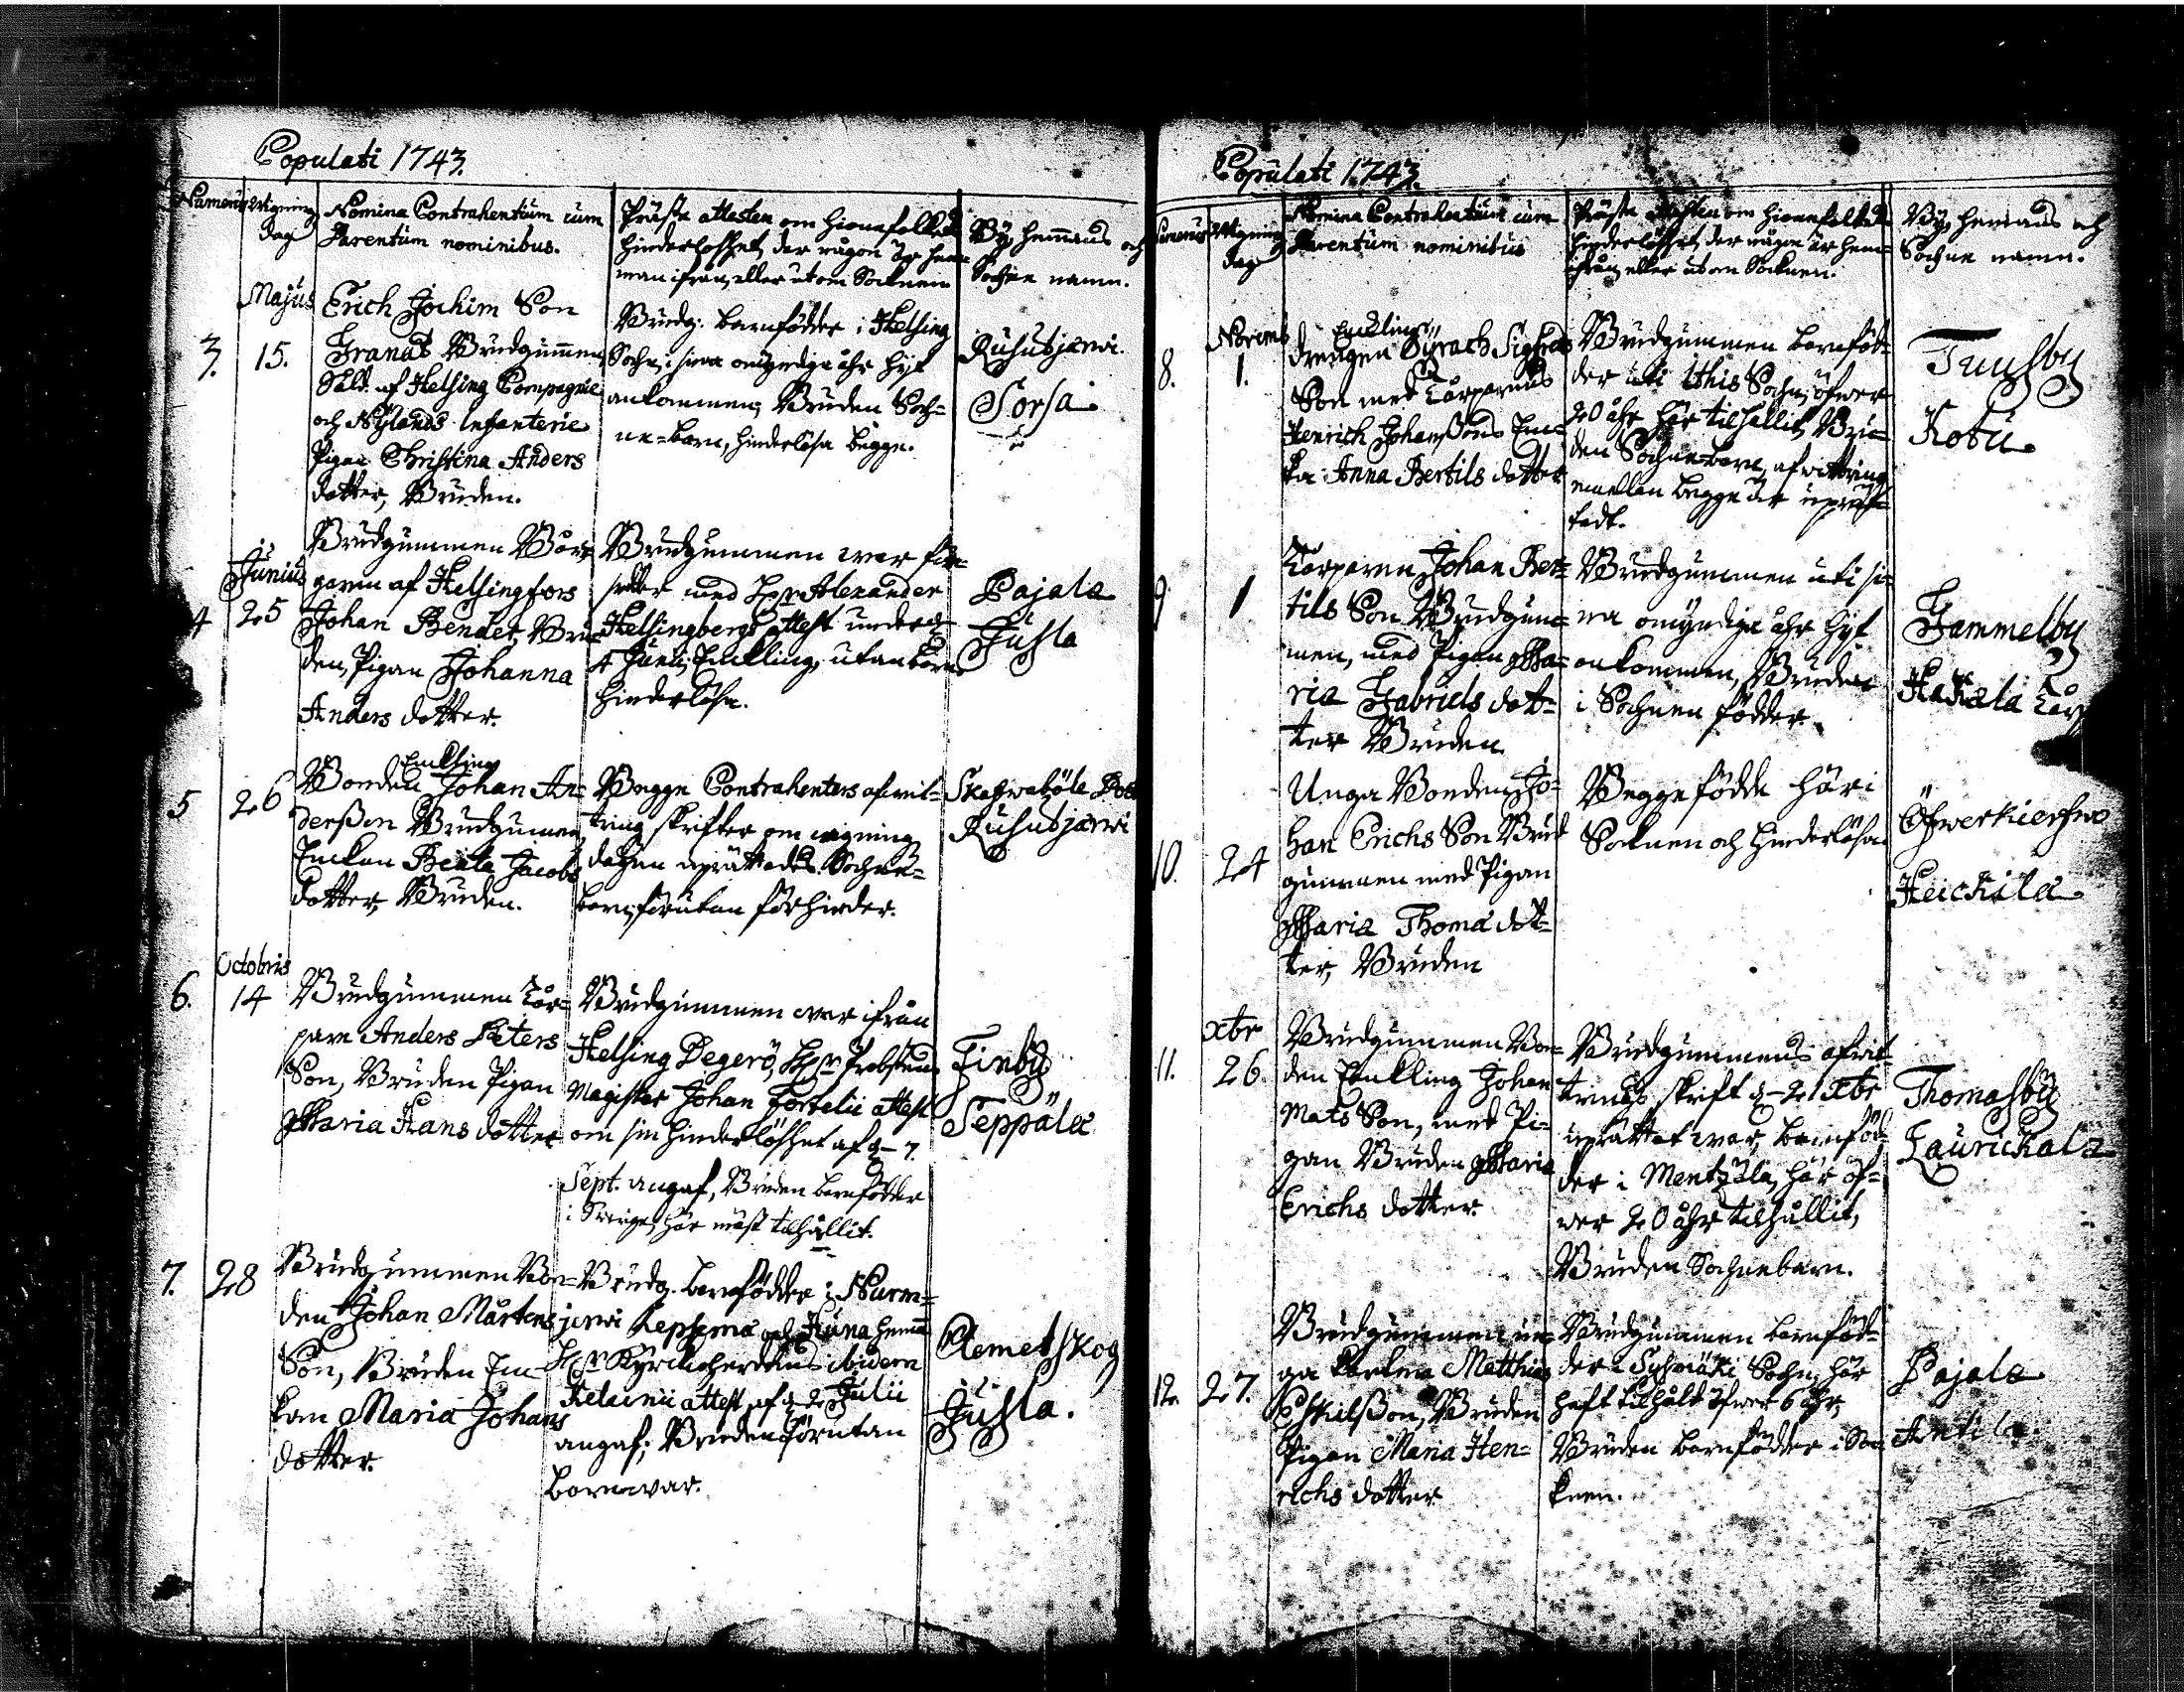 Copulati 1743.
Numerus
Wigning dag
Nomina Contrahentium cum
Parentum nominibus.
Präste attesten om hionefolkets
hinderlöshet, der någon är hem=
man ifrån, eller utom Socknen
By, hemans och
Sochne namn.
Majus
3. 15.
Erich Jochim Son
Granat Brudgummen,
Sold. af Helsing Compagnie
och Nylands Infanterie
Pigan Christina Anders
dotter, Bruden.
Brudg. barnfödder i Helsing
Sochn, i sina omyndiga åhr hijt
ankommen, Bruden Soch=
ne=barn, hinderlösa begge.
Ruhusjärwi.
Sorsa
Junius
4 25
Brudgummen Bor=
garen af Helsingfors
Johan Bender, Bru=
den, Pigan Johanna
Anders dotter.
Brudgummen war för=
sedder med Hr Alexander
Helsingbergs attest under d.
4 Junii, Enckling, utan barn
hinderlösa.
Pajala
Jusla
5 26
Enckling
Bonden Johan An=
derßon Brudgummen,
Enckan Beata Jacobs
dotter, Bruden.
Begge Contrahenters afwit=
tring skrifter om wigning
dagen uprättades. Sochne=
barn, förutan förhinder.
Skafwaböle
Ruhusjärwi
Octobris
6. 14
Brudgummen Tor=
parn Anders Peters
Son, Bruden Pigan
Maria Hans dotter
Brudgummen war ifrån
Helsing Degerö, Hr Probsten
Magister Johan Forselii attest
om sin hinderlöshet af d. 7.
Sept. angaf, Bruden barnfödder
i Swerige, här mäst tilhållit.
Finby
Seppälä
7. 28
Brudgummen Bon=
den Johan Mårtens
Son, Bruden En=
kan Maria Johans
dotter.
Brudg. barnfödder i Nurm=
jerwi Lepsema och Kuna hema
Hr Kyrckioherdens ibidem
Helenii attest af d. 2 Julii
angaf; Bruden förutan
barn war.
Clemetskog
Jusla.
Copulati 1743.
Numerus
Wigning dag
Nomina Contrahentium cum
Parentum nominibus
Präste attesten om hionefolkets
hinderlöshet, der någon är hem=
ifrån, eller utom Socknen.
By, hemans och
Sochne namn.
Novemb
8. 1.
Enckling
Drengen Syrach Sigfreds
Son med Torparens
Henrich Johanßons En=
ka Anna Bertils dotter
Brudgummen barnföd=
der uti Ithis Sochn, öfwer
20 åhr här tilhållit, Bru=
den Sochnebarn, afwittring
emellan begge är uprät=
tadt.
Tuusby
Kotu
9 1
Torparen Johan Ber=
tils Son Brudgum=
men, med Pigan Ma=
ria Gabriels dot=
ter Bruden
Brudgummen uti si=
na omyndiga åhr hijt
ankommen, Bruden
i Sochnen födder.
Gammelby
Hakala Torp
10. 24
Unga Bonden Jo=
han Erichs Son Brud
gummen med Pigan
Maria Thomä dot=
ter, Bruden
Begge födde här i
Socknen och hinderlösa.
Öfwerkierfwe
Heickilä
xbr
11. 26.
Brudgummen Bon=
den Enckling Johan
Mats Son, med Pi=
gan Bruden Maria
Erichs dotter.
Brudgummens afwit
trings skrift d. 21 Xbr
uprättat war, barnföd=
der i Mentzälä, här öf=
wer 20 åhr tilhållit,
Bruden Sochnebarn.
Thomasby
Laurickala
12. 27.
Brudgummen un=
ga Matthias
Eskilßon, Bruden
Pigan Maria Hen=
richs dotter
Brudgummen barnföd=
der i Sochn, här
haft tilhåld öfwer 6 åhr,
Bruden barnfödder i Soc
knen.
Pajala
Antila